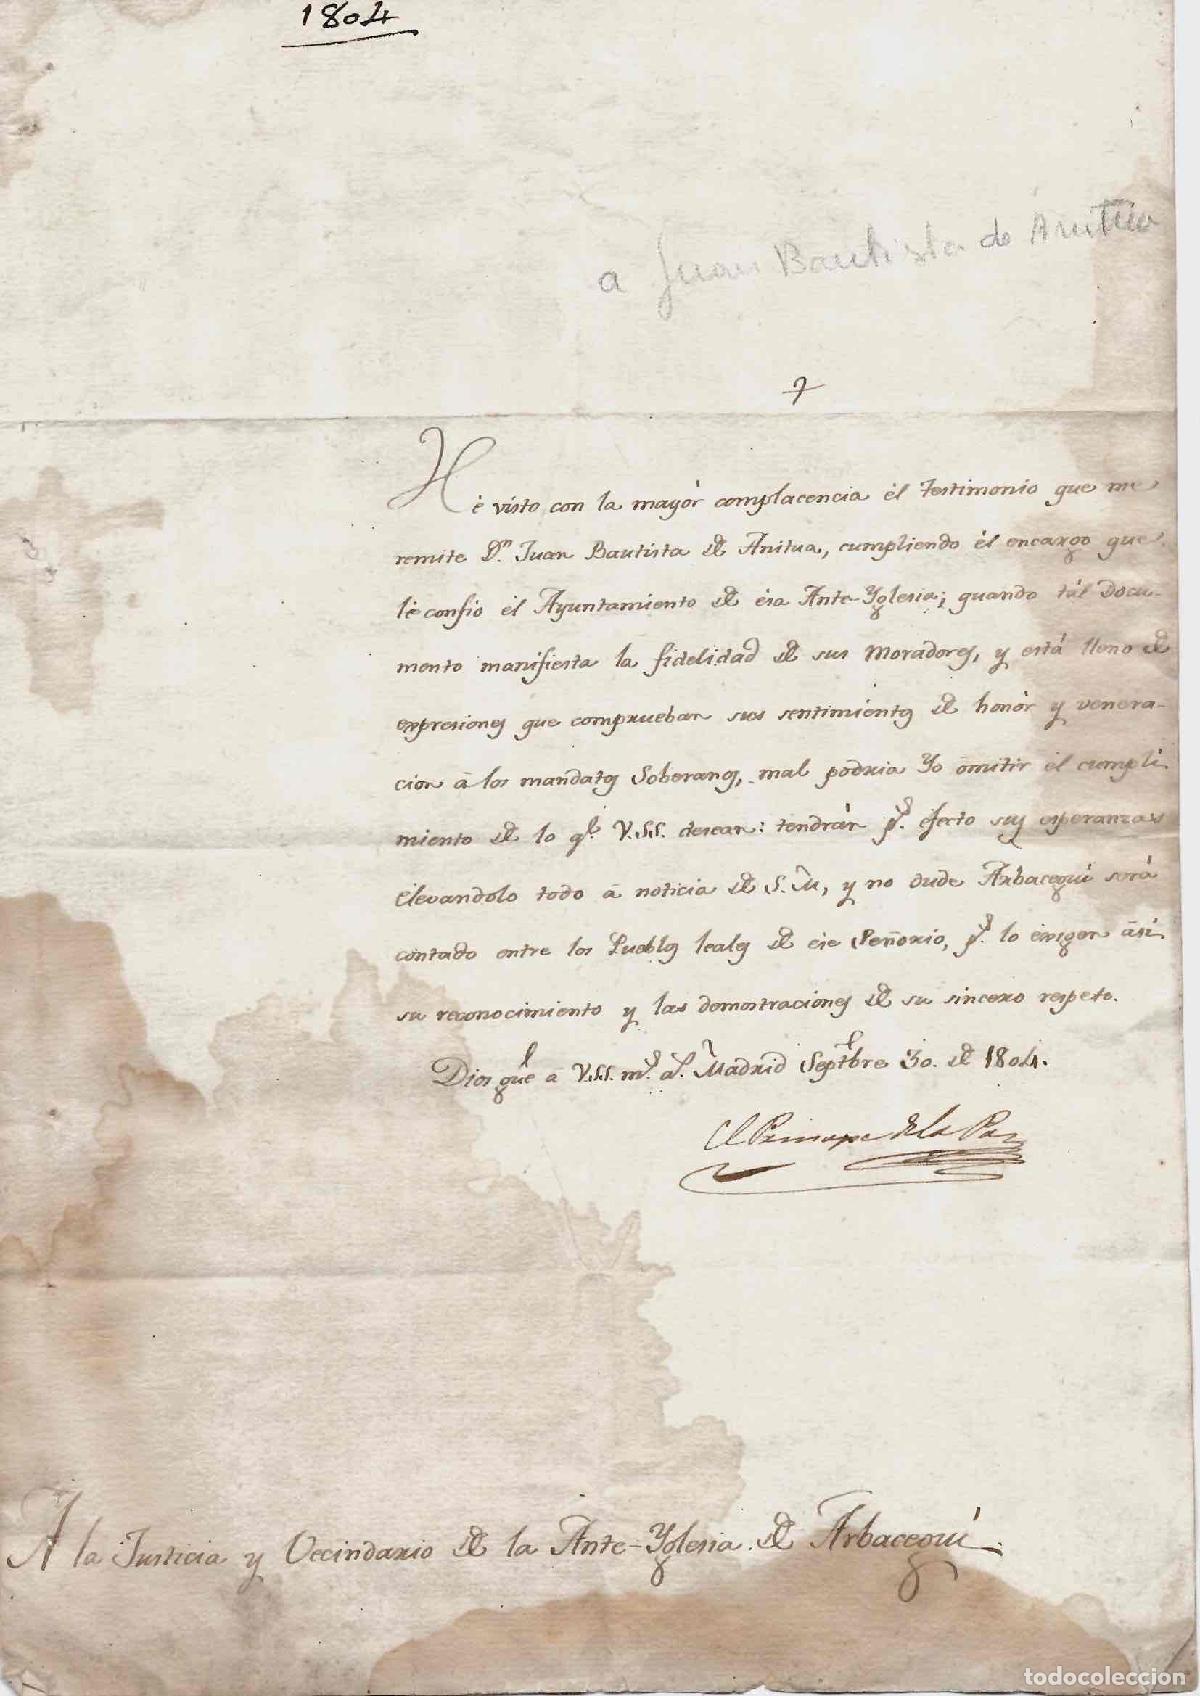 1804
a Juan Bautista de Anitua
He visto con la mayór complacencia él testimonio que me
remite Dn. Juan Bautista de Anitua, cumpliendo él encargo que
lé confió él Ayuntamiento de ésa Ante-Yglesia; quando tál Docu-
mento manifiesta la fidelidad de sus Moradores, y está lleno de
expresiones que comprueban sus sentimientos de honór y venera-
cion á los mandatos Soberanos, mal podria Yo ómitir él cumpli
miento de lo qe. V.SS. desean: tendrán ps. efecto sus esperanzas
élevandolo todo á noticia de S.M, y no dude Arbacegui será
contado entre los Pueblos leales de ese Señorio, ps. lo éxigen ási
su reconocimiento y las demostraciones de su sincero respeto.
Dios gue a V.SS. ms. as. Madrid Septbre 30. de 1804.
El Principe de la Paz
A la Justicia y Vecindario de la Ante-Yglesia de Arbacegui
todocoleccion